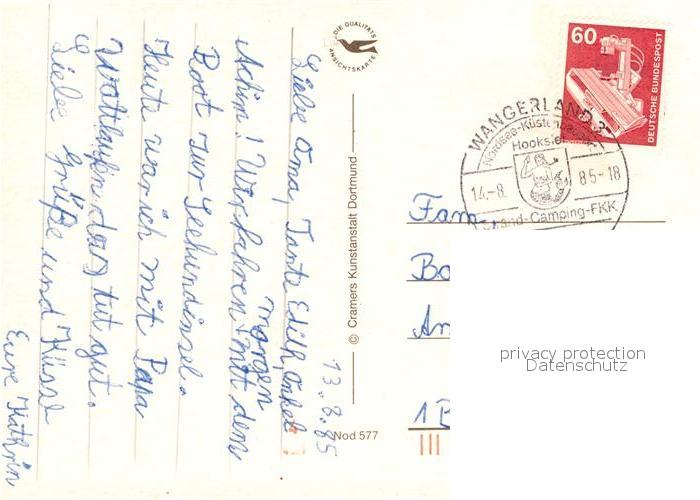 13.8.85
Liebe Oma, Tante Edith, Onkel
Achim! Wir fahren morgen mit dem
Boot zur Seehundinsel.
Heute war ich mit Papa
Wattlaufen, das tut gut.
Liebe Grüße und Küsse
Eure Kathrin
DIE QUALITÄTS
ANSICHTSKARTE
© Cramers Kunstanstalt Dortmund
Nod 577
60
DEUTSCHE BUNDESPOST
WANGERLAND 3
Hooksiel
14.-8. 85-18
Strand-Camping-FKK
Fam.
Bo
An
1 B
privacy protection
Datenschutz